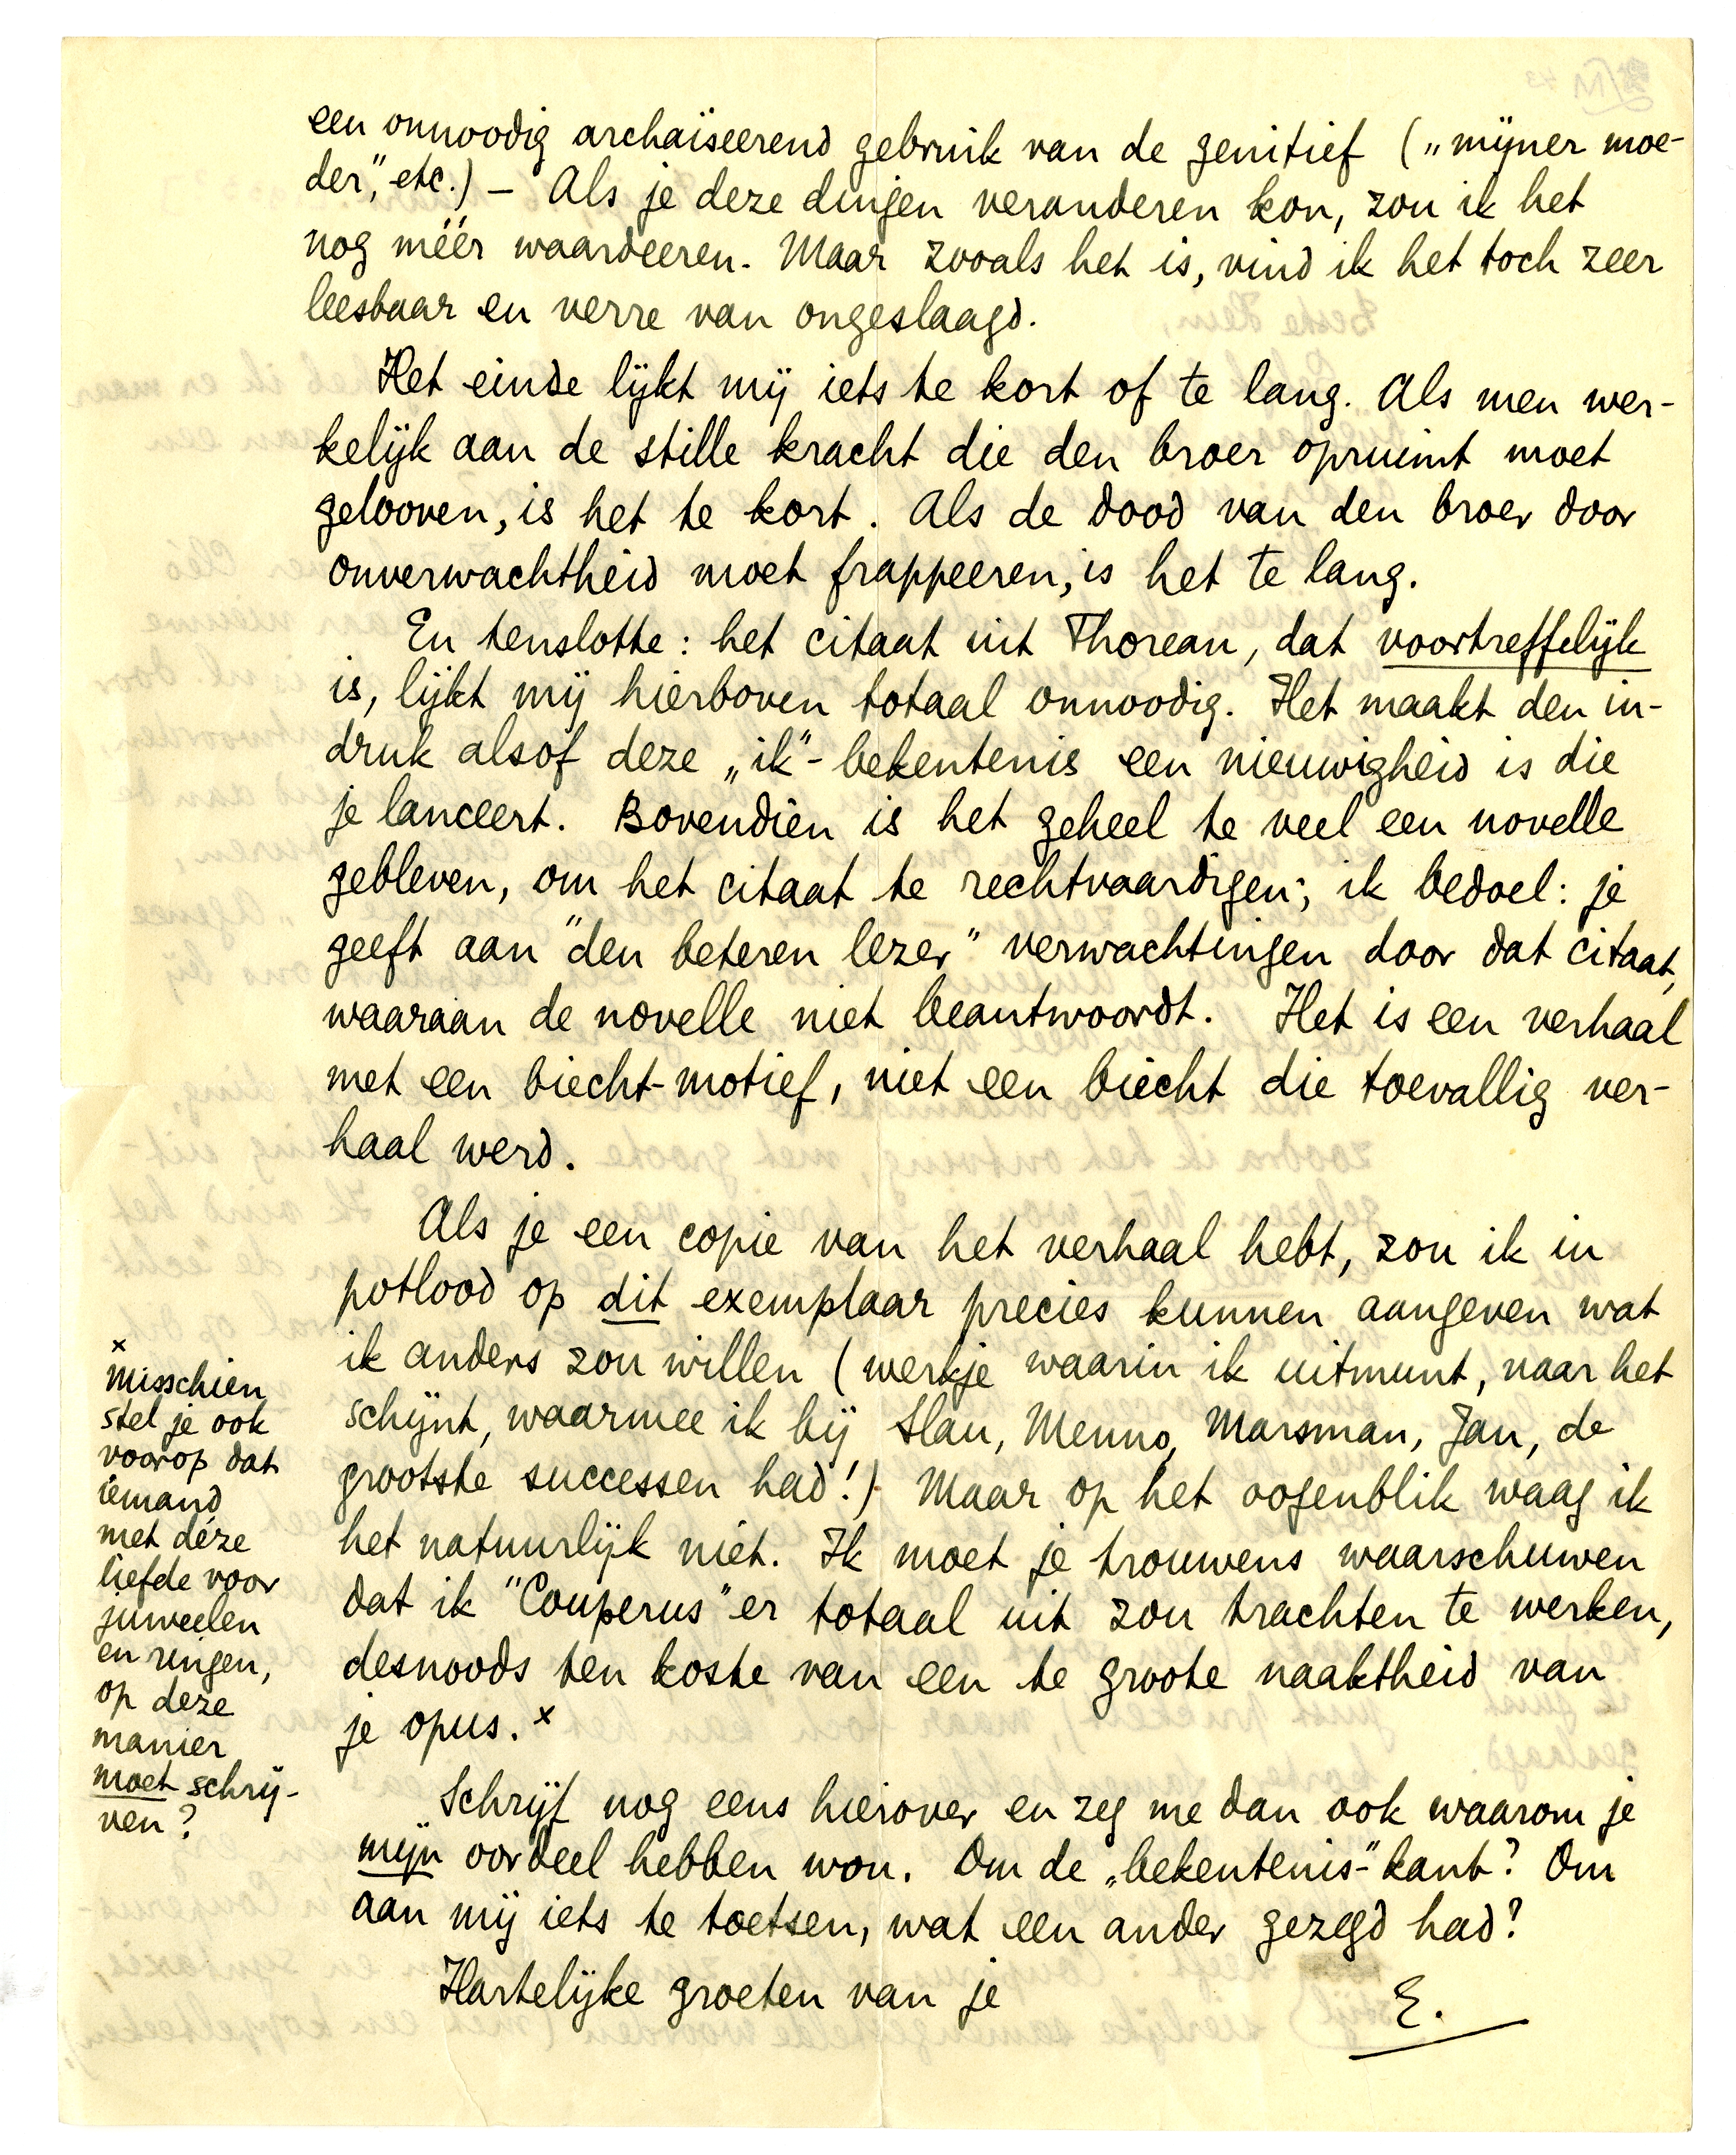 een onnoodig archaïseerend gebruik van de genitief („mijner moe-
der”, etc.) – Als je deze dingen veranderen kon, zou ik het
nog méér waardeeren. Maar zooals het is, vind ik het toch zeer
leesbaar en verre van ongeslaagd.
Het einde lijkt mij iets te kort of te lang. Als men wer-
kelijk aan de stille kracht die den broer opruimt moet
gelooven, is het te kort. Als de dood van den broer door
onverwachtheid moet frappeeren, is het te lang.
En tenslotte: het citaat uit Thoreau, dat voortreffelijk
is, lijkt mij hierboven totaal onnoodig. Het maakt den in-
druk alsof deze „ik”-bekentenis een nieuwigheid is die
je lanceert. Bovendien is het geheel te veel een novelle
gebleven, om het citaat te rechtvaardigen; ik bedoel: je
geeft aan "den beteren lezer" verwachtingen door dat citaat,
waaraan de novelle niet beantwoordt. Het is een verhaal
met een biecht-motief, niet een biecht die toevallig ver-
haal werd.
Als je een copie van het verhaal hebt, zou ik in
potlood op dit exemplaar precies kunnen aangeven wat
ik anders zou willen (werkje waarin ik uitmunt, naar het
schijnt, waarmee ik bij Slau, Menno, Marsman, Jan, de
grootste successen had!) Maar op het oogenblik waag ik
het natuurlijk niet. Ik moet je trouwens waarschuwen
dat ik "Couperus" er totaal uit zou trachten te werken,
desnoods ten koste van een te groote naaktheid van
je opus. x
Schrijf nog eens hierover en zeg me dan ook waarom je
mijn oordeel hebben wou. Om de „bekentenis-” kant? Om
aan mij iets te toetsen, wat een ander gezegd had?
Hartelijke groeten van je
E.
x
Misschien
stel je ook
voorop dat
iemand
met déze
liefde voor
juweelen
en ringen,
op deze
manier
moet schrij-
ven?